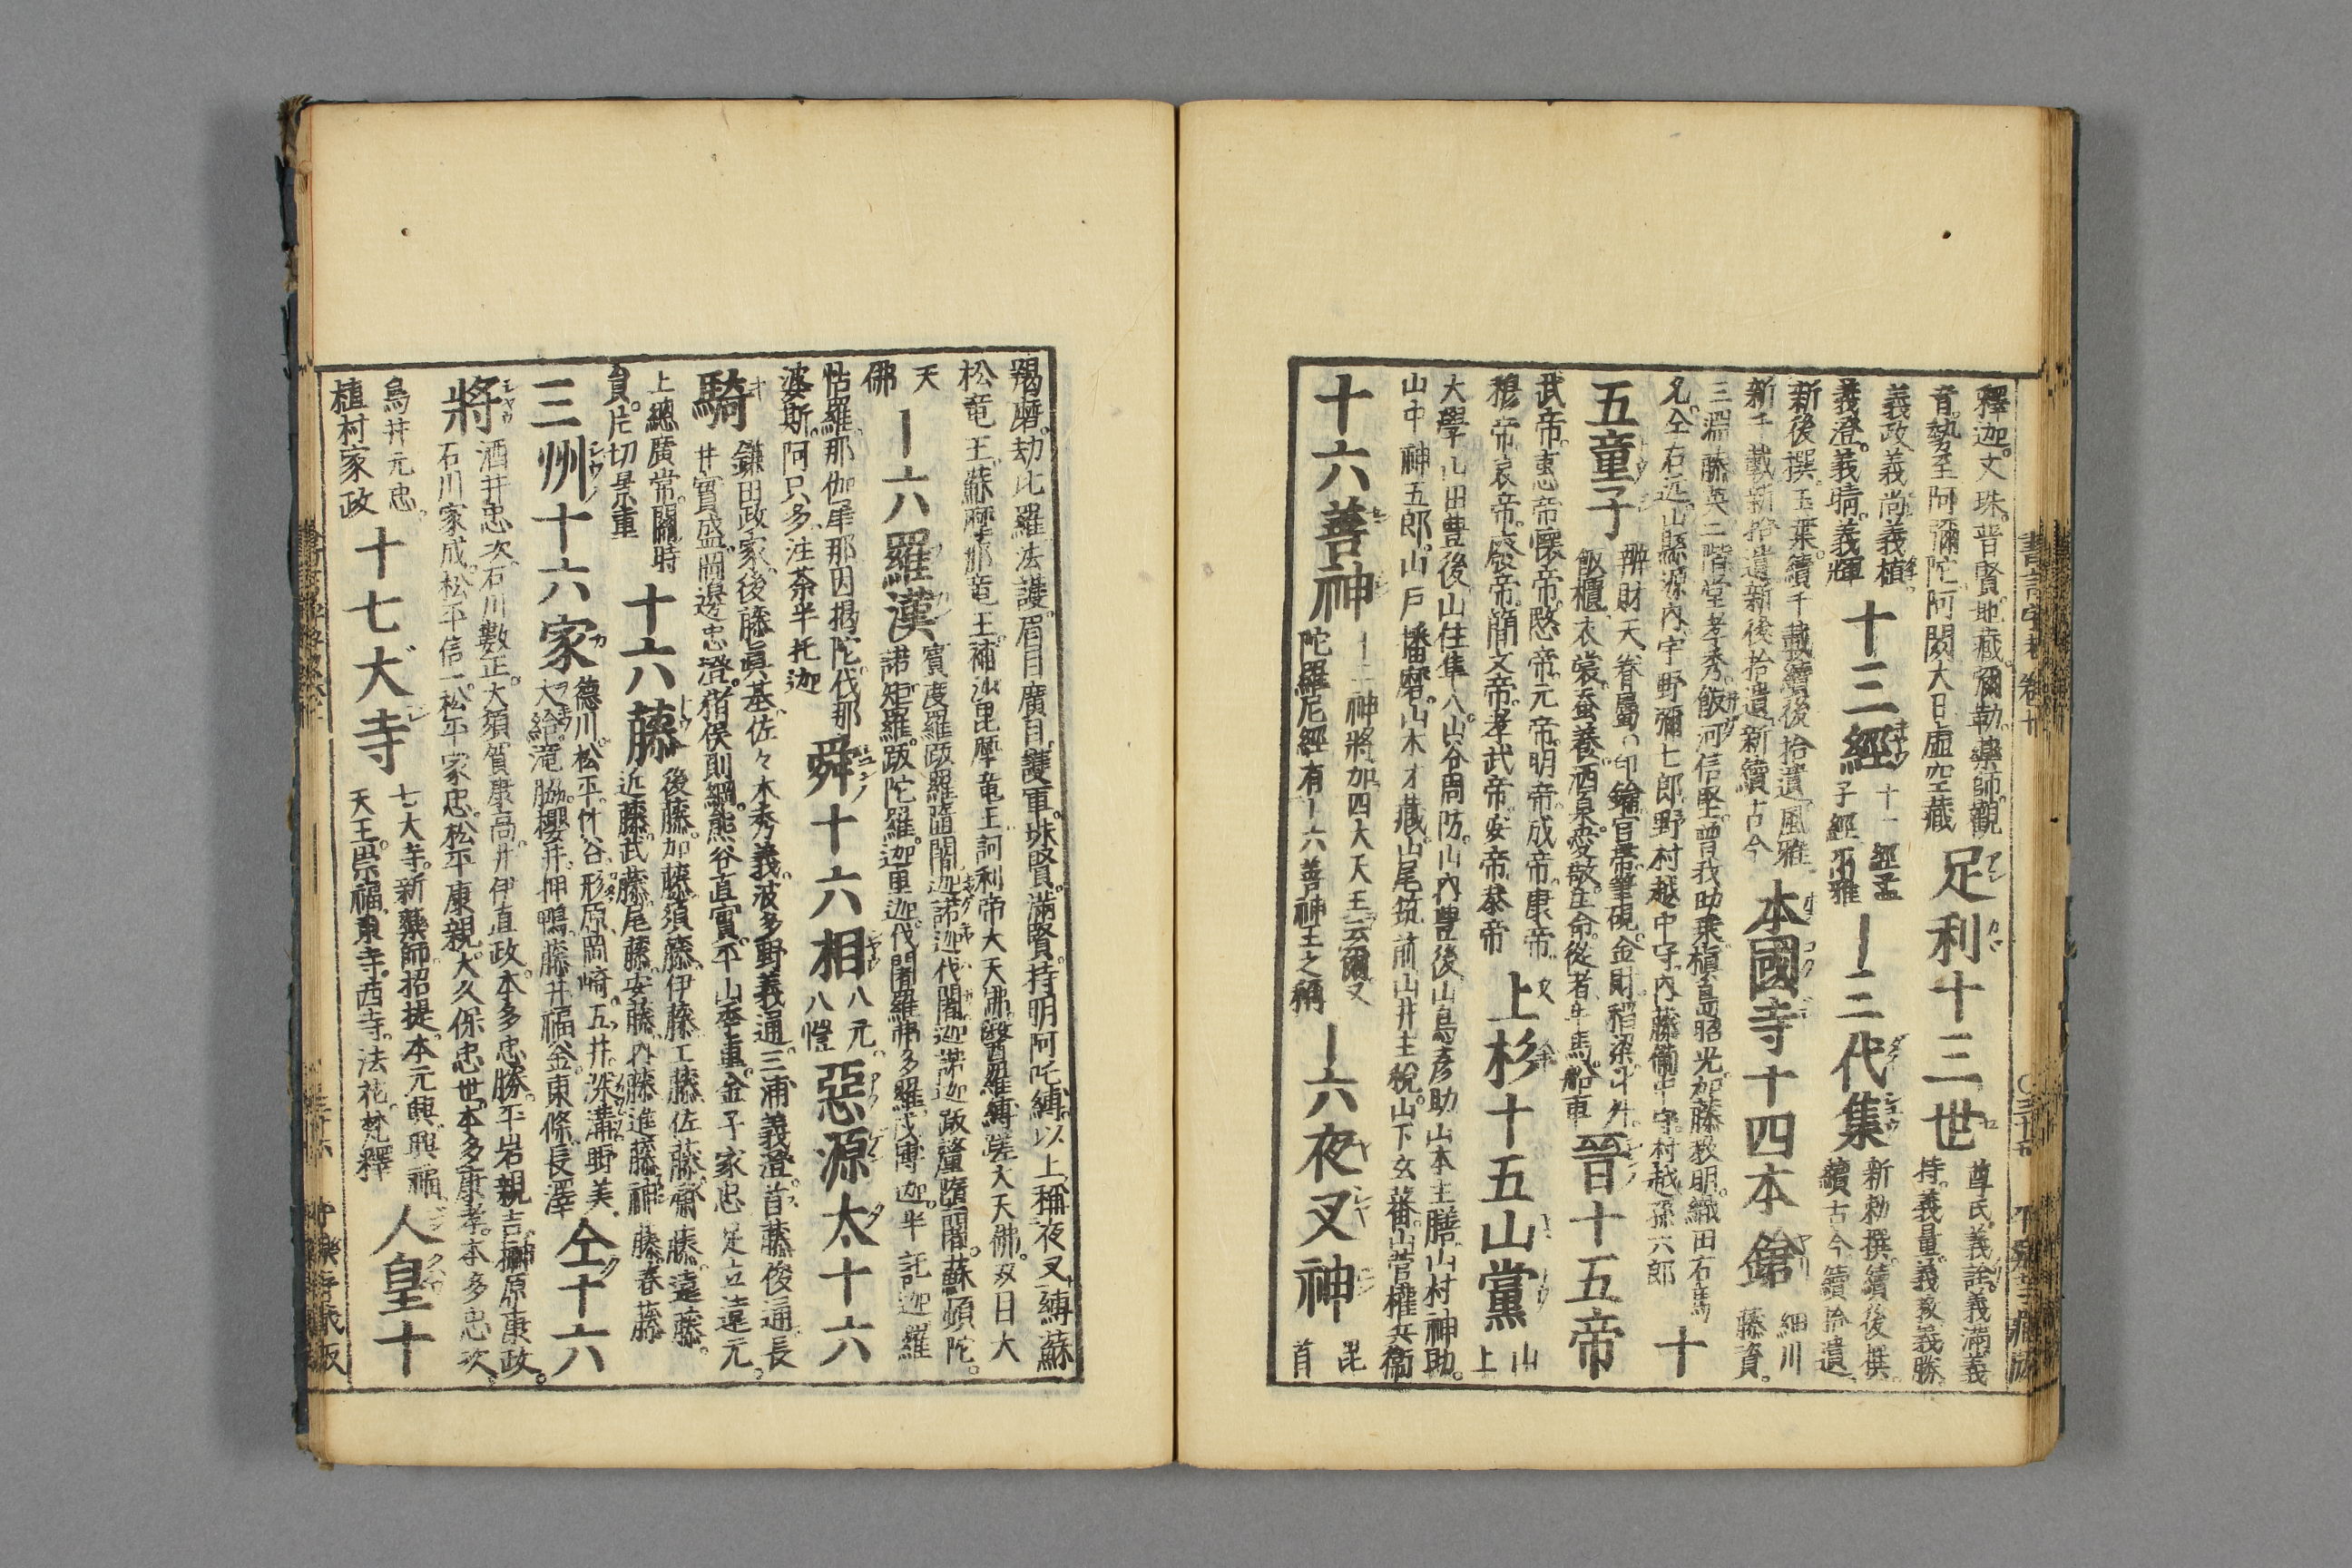 釋迦。文珠。普賢。地藏。彌勒。藥師。觀
音。勢至。阿彌陀。阿閦。大日。虛空藏
足利十三世
尊氏。義詮。義滿。義
持。義量。義教。義勝。
義政。義尚。義植。
義澄。義晴。義輝
十三經
十一經孟
子經爾雅
十三代集
新勅撰。續後撰。
續古今。續拾遺。
新後撰。玉葉。續千載。續後拾遺。風雅。
新千載。新拾遺。新後拾遺。新續古今
本國寺十四本鎗
細川
藤資。
三淵藤英。二階堂孝秀。飯河信堅。曽我助乗。槇島昭光。加藤教明。織田右馬
允。仝右近。山縣源內。宇野彌七郎。野村越中守。內藤備中守。村越孫六郎
十
五童子
辨財天眷屬。印鑰。官帶。筆硯。金財。稻籾。斗升。
飯櫃。衣裳。蚕養。酒泉。愛敬。生命。從者。牛馬。船車
晉十五帝
武帝。惠帝。懷帝。愍帝。元帝。明帝。成帝。康帝。
穆帝。哀帝。廢帝。簡文帝。孝武帝。安帝。恭帝
上杉十五山黨
山
上
大學。山田豊後。山住隼人。山谷周防。山內豊後。山島彦助。山本主膳。山村神助。
山中神五郎。山戶播磨。山木才藏。山尾筑前。山井主稅。山下玄蕃。山菅權兵衛
十六善神
十二神將加四大天王云爾又
陀羅尼經有十六善神王之稱
十六夜叉神
毘
首
羯磨。劫比羅。法護。眉目。廣目。護軍。珠賢。滿賢。持明。阿吒縛以上稱夜叉縛蘇
松竜王。蘇摩那竜王。補沙毘摩竜王。訶利帝大天。佛醫羅縛蹉大天。佛双日大
天
佛
十六羅漢
賓度羅跋羅隨闍。迦諾迦伐闍。迦諾迦跋釐隨闍。蘇頻陀。
諾矩羅。跋陀羅。迦里迦。伐闍羅弗多羅。戍博迦。半託迦。羅
怙羅。那伽犀那。因揭陀。伐那
婆斯。阿只多。注荼半托迦
舜十六相
八元。
八愷
惡源太十六
騎
鎌田政家。後藤眞基。佐々木秀義。波多野義通。三浦義澄。首藤俊通。長
井實盛。岡邊忠澄。猪俣則綱。熊谷直實。平山季重。金子家忠。足立遠元。
上總廣常。關時
員。片切景重
十六藤
後藤。加藤。須藤。伊藤。工藤。佐藤。齋藤。遠藤。
近藤。武藤。尾藤。安藤。內藤。進藤。神藤。春藤
三州十六家
德川。松平。竹谷。形原。岡崎。五井。深溝。野美。
大給。滝脇。櫻井。押鴨。藤井。福釜。東條。長澤
仝十六
將
酒井忠次。石川數正。大須賀康高。井伊直政。本多忠勝。平岩親吉。榊原康政。
石川家成。松平信一。松平家忠。松平康親。大久保忠世。本多康孝。本多忠次。
鳥井元忠。
植村家政
十七大寺
七大寺。新藥師。招提。本元興。興福。
天王。崇福。東寺。西寺。法花。梵釋
人皇十